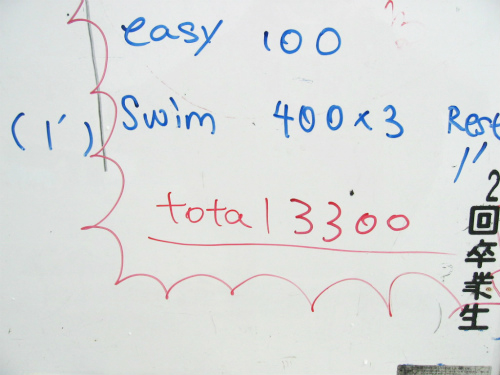 easy 100
(1') Swim 400×3 Rest
1'
total 3300
2回卒業生